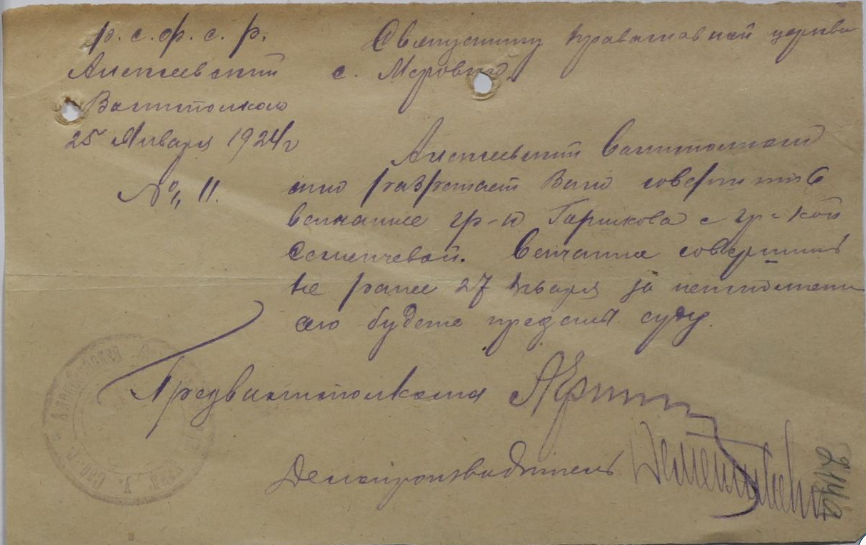 Р. С. Ф. С. Р.
Алексеевский
Ваисполком
25 Января 1924 г
№ 11.
Священнику православной церкви
с.
Алексеевский Ваисполком
разрешает Вам совершить
венчание гр-на Горшкова с гр-кой
Семенчевой. Венчание совершить
не ранее 27 Января за неисполнени
будете преданы суду.
Предваисполкома
Делопроизводитель
214а